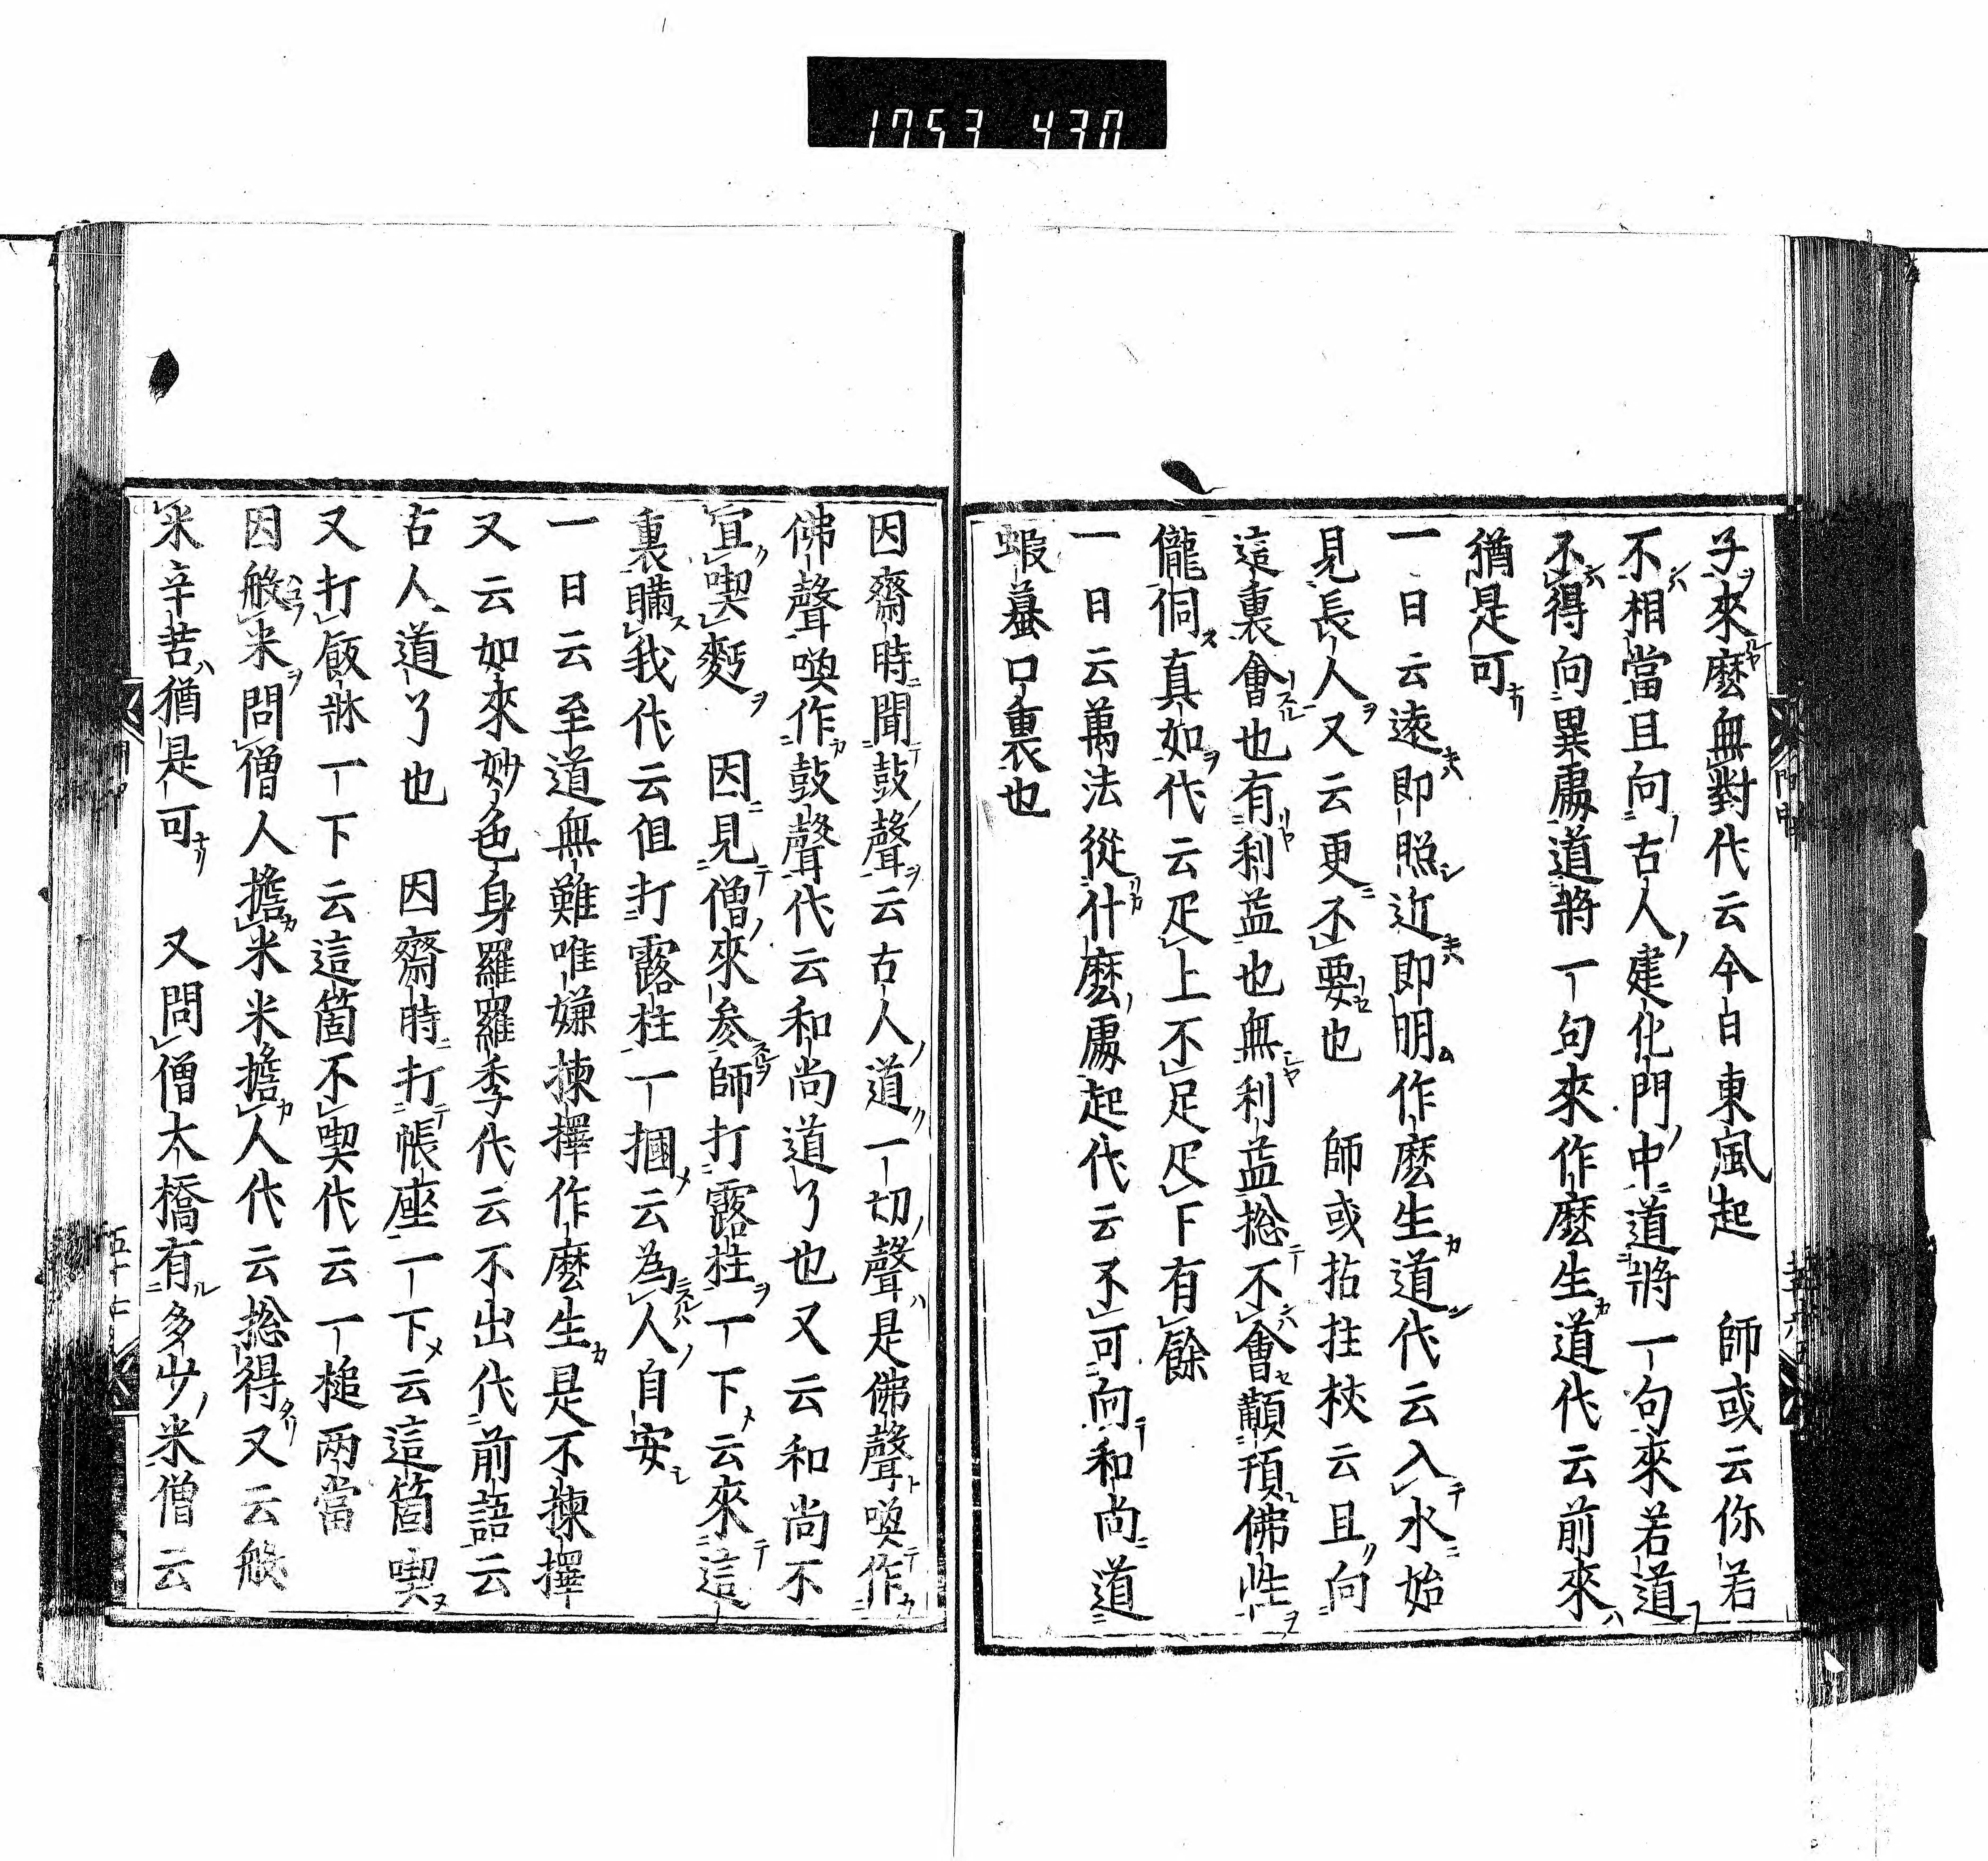 1753 430
子來麼無對代云今日東風起　師或云你若
不相當且向古人建化門中道將一句來若道
不得向異處道將一句來作麼生道代云前來
猶是可
一日云遠即照近即明作麼生道代云入水始
見長人又云更不要也　師或拈拄杖云且向
這裏會也有利益也無利益揔不會顢頇佛性
儱侗真如代云疋上不足疋下有餘
一日云萬法從什麼處起代云不可向和尚道
蝦蟇口裏也
因齋時聞鼓聲云古人道一切聲是佛聲喚作
佛聲喚作鼓聲代云和尚道了也又云和尚不
宜喫麪　因見僧來參師打露拄一下云來這
裏瞞我代云但打露柱一摑云為人自安
一日云至道無難唯嫌揀擇作麼生是不揀擇
又云如來妙色身羅羅李代云不出代前語云
古人道了也　因齋時打帳座一下云這箇喫
又打飯牀一下云這箇不喫代云一槌兩當
因般米問僧人擔米米擔人代云揔得又云般
米辛苦猶是可　又問僧大橋有多少米僧云